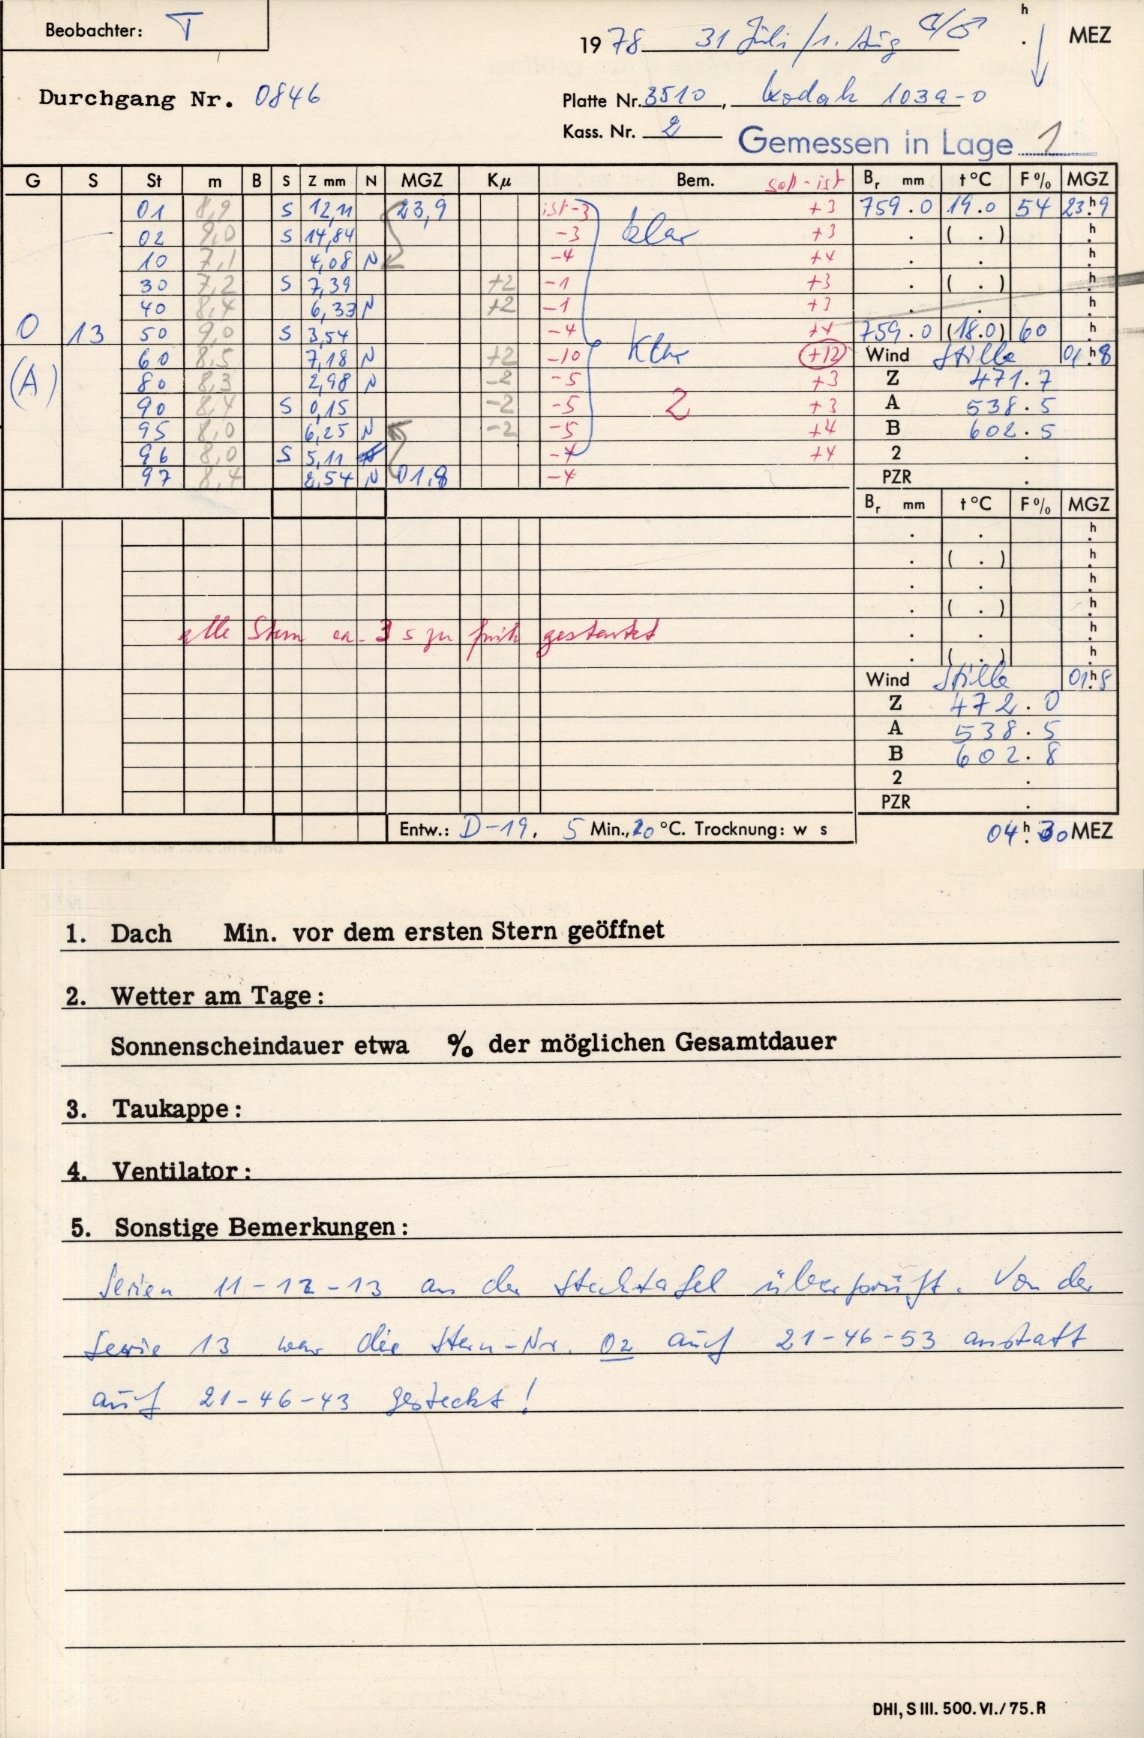 Beobachter: T
1978 31 Juli/1. Aug ♂/♂ . h MEZ
Durchgang Nr. 0846
Platte Nr. 3510, Kodak 103a-0
Kass. Nr. 2
Gemessen in Lage 1
G S St m B S Z mm N MGZ Kμ Bem. soll-ist Br mm t °C F % MGZ
01 8,9 S 12,11 23,9 ist-3 +3 759.0 19.0 54 23h9
02 9,0 S 14,84 -3 klar +3 . ( . ) h
10 7,1 4,08 N -4 +4 . . h
30 7,2 S 7,39 +2 -1 +3 . ( . ) h
40 8,4 6,33 N +2 -1 +3 . . h
0 13 50 9,0 S 3,54 -4 klar +4 759.0 (18.0) 60 h
(A) 60 8,5 7,18 N +2 -10 +12 Wind Stille 01h8
80 8,3 2,98 N -2 -5 +3 Z 471.7
90 8,4 S 0,15 -2 -5 2 +3 A 538.5
95 8,0 6,25 N -2 -5 +4 B 602.5
96 8,0 S 5,11 -4 +4 2 .
97 8,4 2,54 N 01,8 -4 PZR .
Br mm t °C F % MGZ
. . h
. ( . ) h
. . h
. ( . ) h
alle Stern ca. 3 s zu früh gestartet . . h
. ( . ) h
Wind Stille 01h8
Z 472.0
A 538.5
B 602.8
2 .
PZR .
Entw.: D-19, 5 Min., 20 °C. Trocknung: w s
04h 30 MEZ
1. Dach Min. vor dem ersten Stern geöffnet
2. Wetter am Tage:
Sonnenscheindauer etwa % der möglichen Gesamtdauer
3. Taukappe:
4. Ventilator:
5. Sonstige Bemerkungen:
Serien 11-12-13 an der Stecktafel überprüft. Von der
Serie 13 war die Stern-Nr. 02 auf 21-46-53 anstatt
auf 21-46-43 gesteckt!
DHI, S III. 500. VI. / 75. R